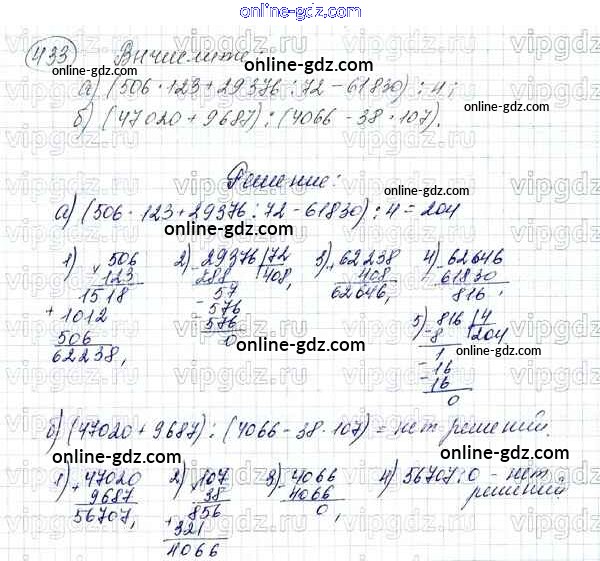 online-gdz.com
433 Вычислите:
а) (506 · 123 + 29376 : 72 - 61830) : 4;
б) (47020 + 9687) : (4066 - 38 · 107).
Решение:
а) (506 · 123 + 29376 : 72 - 61830) : 4 = 204
1) 506
× 123
1518
+ 1012
506
62238,
2) 29376 | 72
- 288 | 408,
57
- 576
- 576
0
3) 62238
+ 408
62646,
4) 62646
- 61830
816.
5) 816 | 4
- 8 | 204
1
- 16
- 16
0
б) (47020 + 9687) : (4066 - 38 · 107) = нет решений.
1) 47020
+ 9687
56707,
2) 107
× 38
856
+ 321
4066
3) 4066
- 4066
0,
4) 56707 : 0 - нет
решений
online-gdz.com
online-gdz.com
online-gdz.com
online-gdz.com
online-gdz.com
online-gdz.com
online-gdz.com
online-gdz.com
online-gdz.com
online-gdz.com
vipgdz.ru